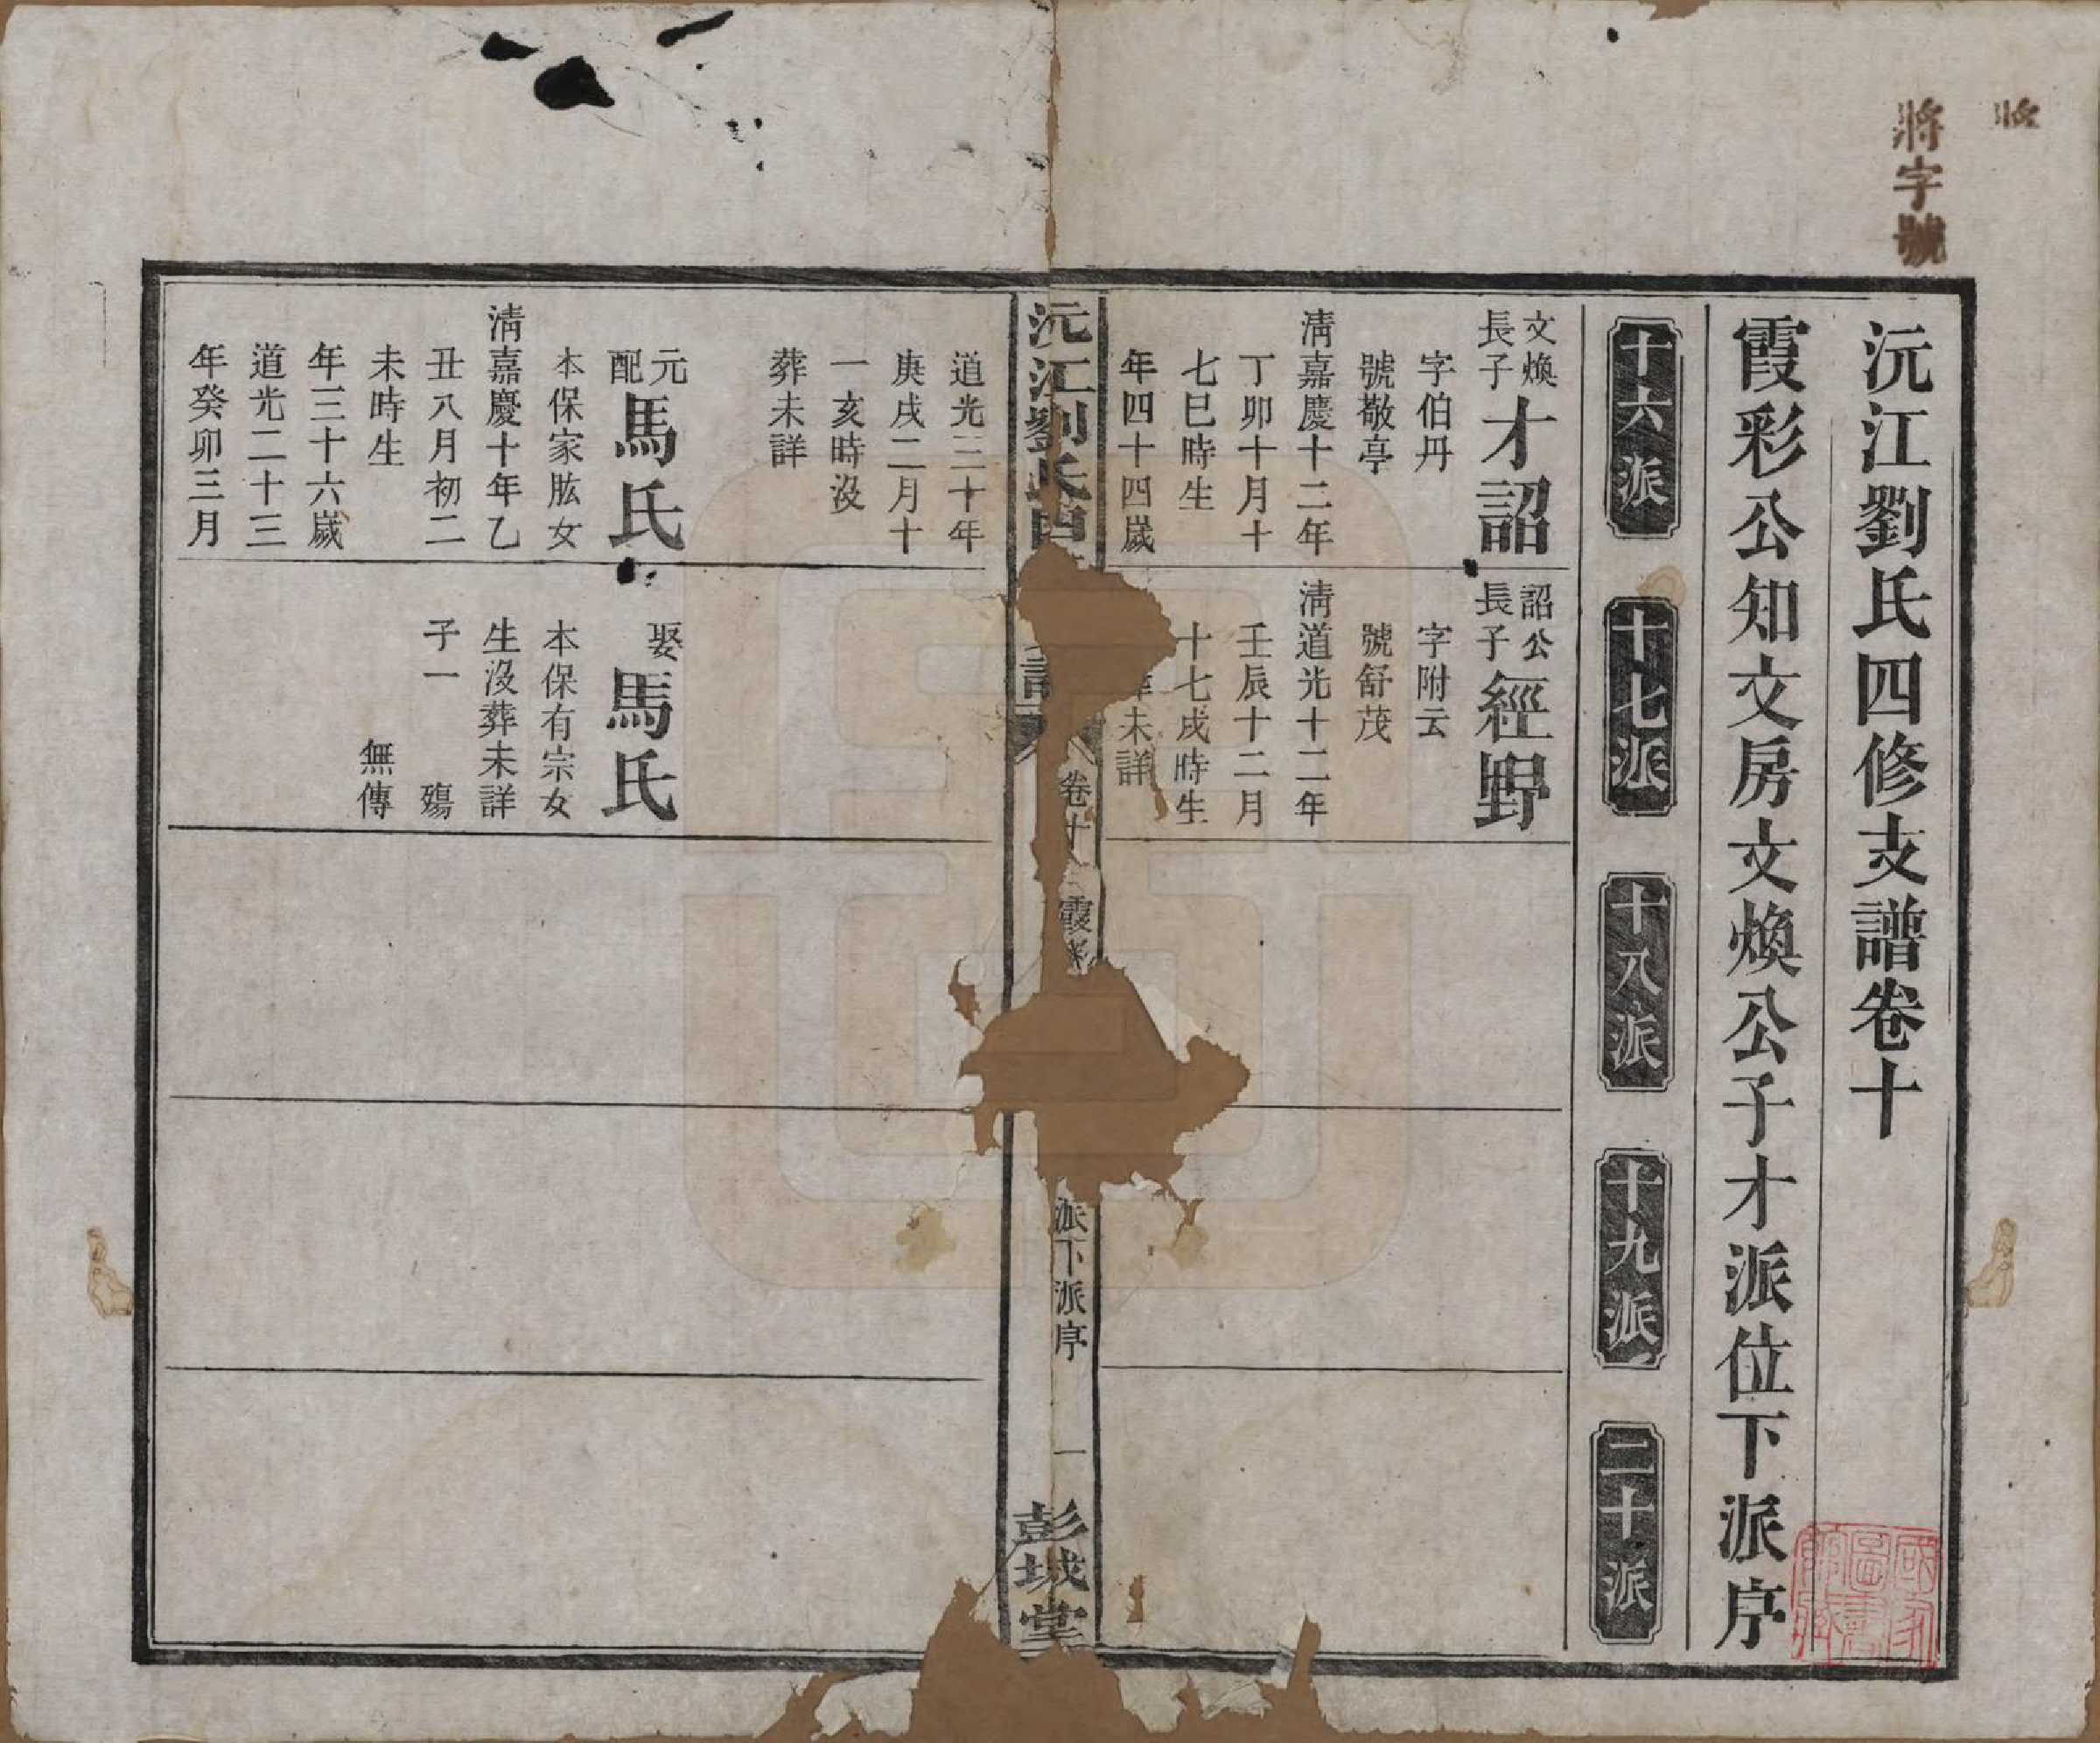 將
將字號
沅江劉氏四修支譜卷十
霞彩公知文房文煥公子才派位下派序
十六派
十七派
十八派
十九派
二十派
文煥
長子
才詔
字伯丹
號敬亭
清嘉慶十二年
丁卯十月十
七巳時生
年四十四嵗
道光三十年
庚戌二月十
一亥時沒
葬未詳
元
配
馬氏
本保家肱女
清嘉慶十年乙
丑八月初二
未時生
年三十六嵗
道光二十三
年癸卯三月
詔公
長子
經野
字附云
號舒茂
清道光十二年
壬辰十二月
十七戌時生
未詳
娶
馬氏
本保有宗女
生沒葬未詳
子一 殤
無傳
沅江劉氏四
譜
卷十
霞彩
派下派序
一
彭城堂
國家圖書館藏